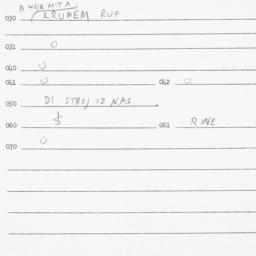 A HOIZ MIT A
030 KRUMEM RUF
031 0
040 0
041 0 042 0
050 DI STREJ IZ NAS
060 $ 061 RINE
070 0